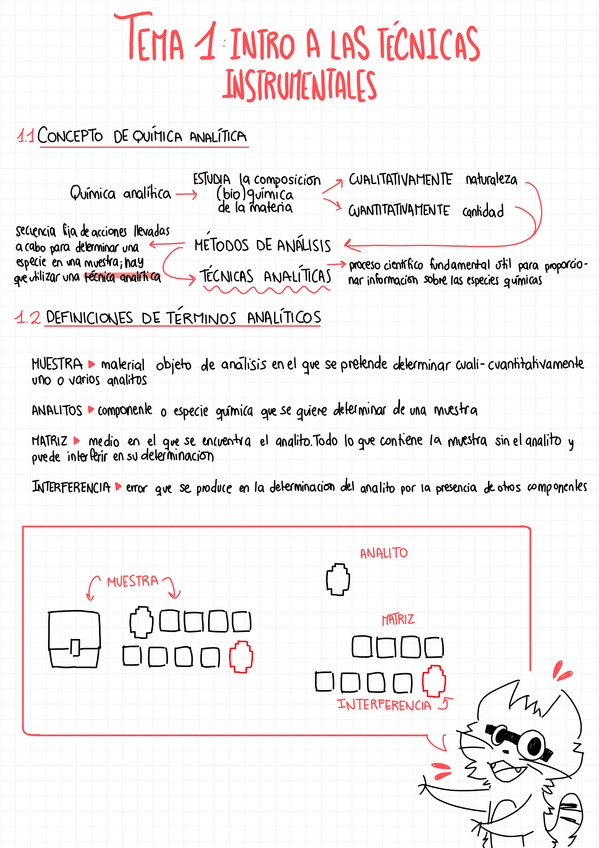 TEMA 1: INTRO A LAS TÉCNICAS
INSTRUMENTALES
1.1 CONCEPTO DE QUÍMICA ANALÍTICA
Química analítica → ESTUDIA la composición
(bio)química
de la materia
→ CUALITATIVAMENTE naturaleza
→ CUANTITATIVAMENTE cantidad
MÉTODOS DE ANÁLISIS
secuencia fija de acciones llevadas
a cabo para determinar una
especie en una muestra; hay
que utilizar una técnica analítica
TÉCNICAS ANALÍTICAS
→ proceso científico fundamental útil para proporcio-
nar información sobre las especies químicas
1.2 DEFINICIONES DE TÉRMINOS ANALÍTICOS
MUESTRA ▶ material objeto de análisis en el que se pretende determinar cuali-cuantitativamente
uno o varios analitos
ANALITOS ▶ componente o especie química que se quiere determinar de una muestra
MATRIZ ▶ medio en el que se encuentra el analito. Todo lo que contiene la muestra sin el analito y
puede interferir en su determinación
INTERFERENCIA ▶ error que se produce en la determinacion del analito por la presencia de otros componentes
MUESTRA
ANALITO
MATRIZ
INTERFERENCIA